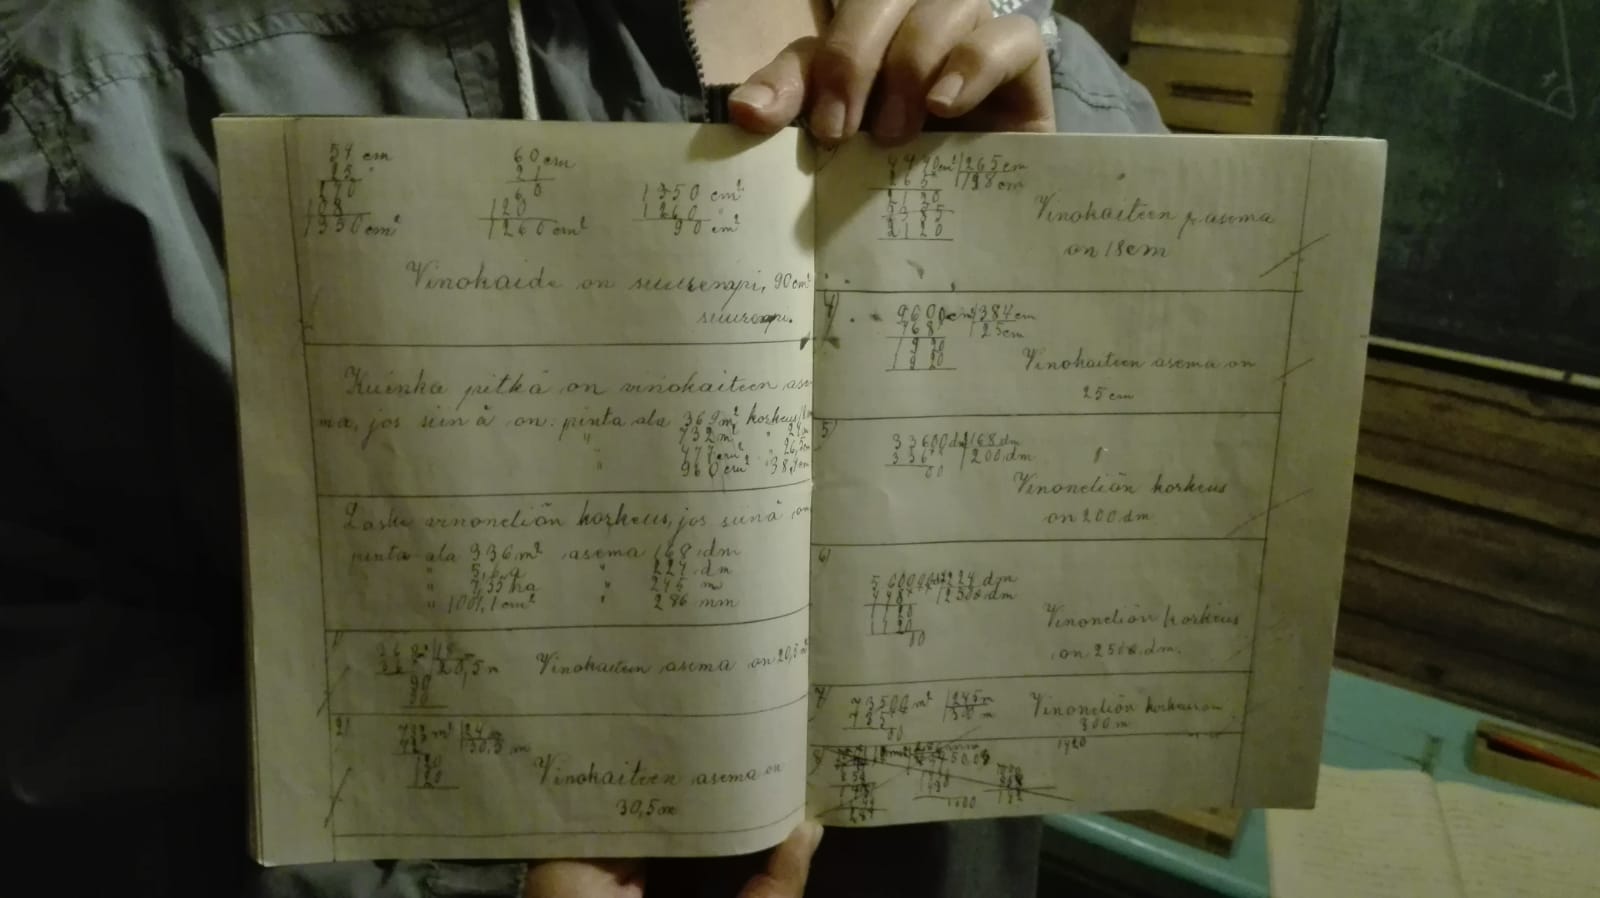 54 cm
25 "
270
108
1350 cm²
60 cm
21
60
120
1260 cm²
1350 cm²
1260 "
90 cm²
Vinokaide on suurempi, 90 cm²
suurempi.
Kuinka pitkä on vinokaiteen ase
ma, jos siinä on: pinta ala 369 m² korkeus
" 732 m² " 24 m
" 477 cm² " 26,5 cm
" 960 cm² " 38,4 cm
Laske vinoneliön korkeus, jos siinä on
pinta ala 336 m² asema 168 dm
" 5,6 a " 224 dm
" 7,35 ha " 245 m
" 1001,1 cm² " 286 mm
1)
20,5 m
90
90
Vinokaiteen asema on 20,5 m
2)
732 m² 24 m
72 30,5 m
120
120
Vinokaiteen asema on
30,5 m
4770 cm² 265 cm
265 18 cm
2120
2120
Vinokaiteen asema
on 18 cm
4)
9600 cm 384 cm
768 25 cm
1920
1920
Vinokaiteen asema on
25 cm
5)
33600 dm² 168 dm
336 200 dm
00
Vinoneliön korkeus
on 200 dm
6)
224 dm
448 2500 dm
1120
1120
00
Vinoneliön korkeus
on 2500 dm.
7)
73500 m² 245 m
735 300 m
00
Vinoneliön korkeus on
300 m